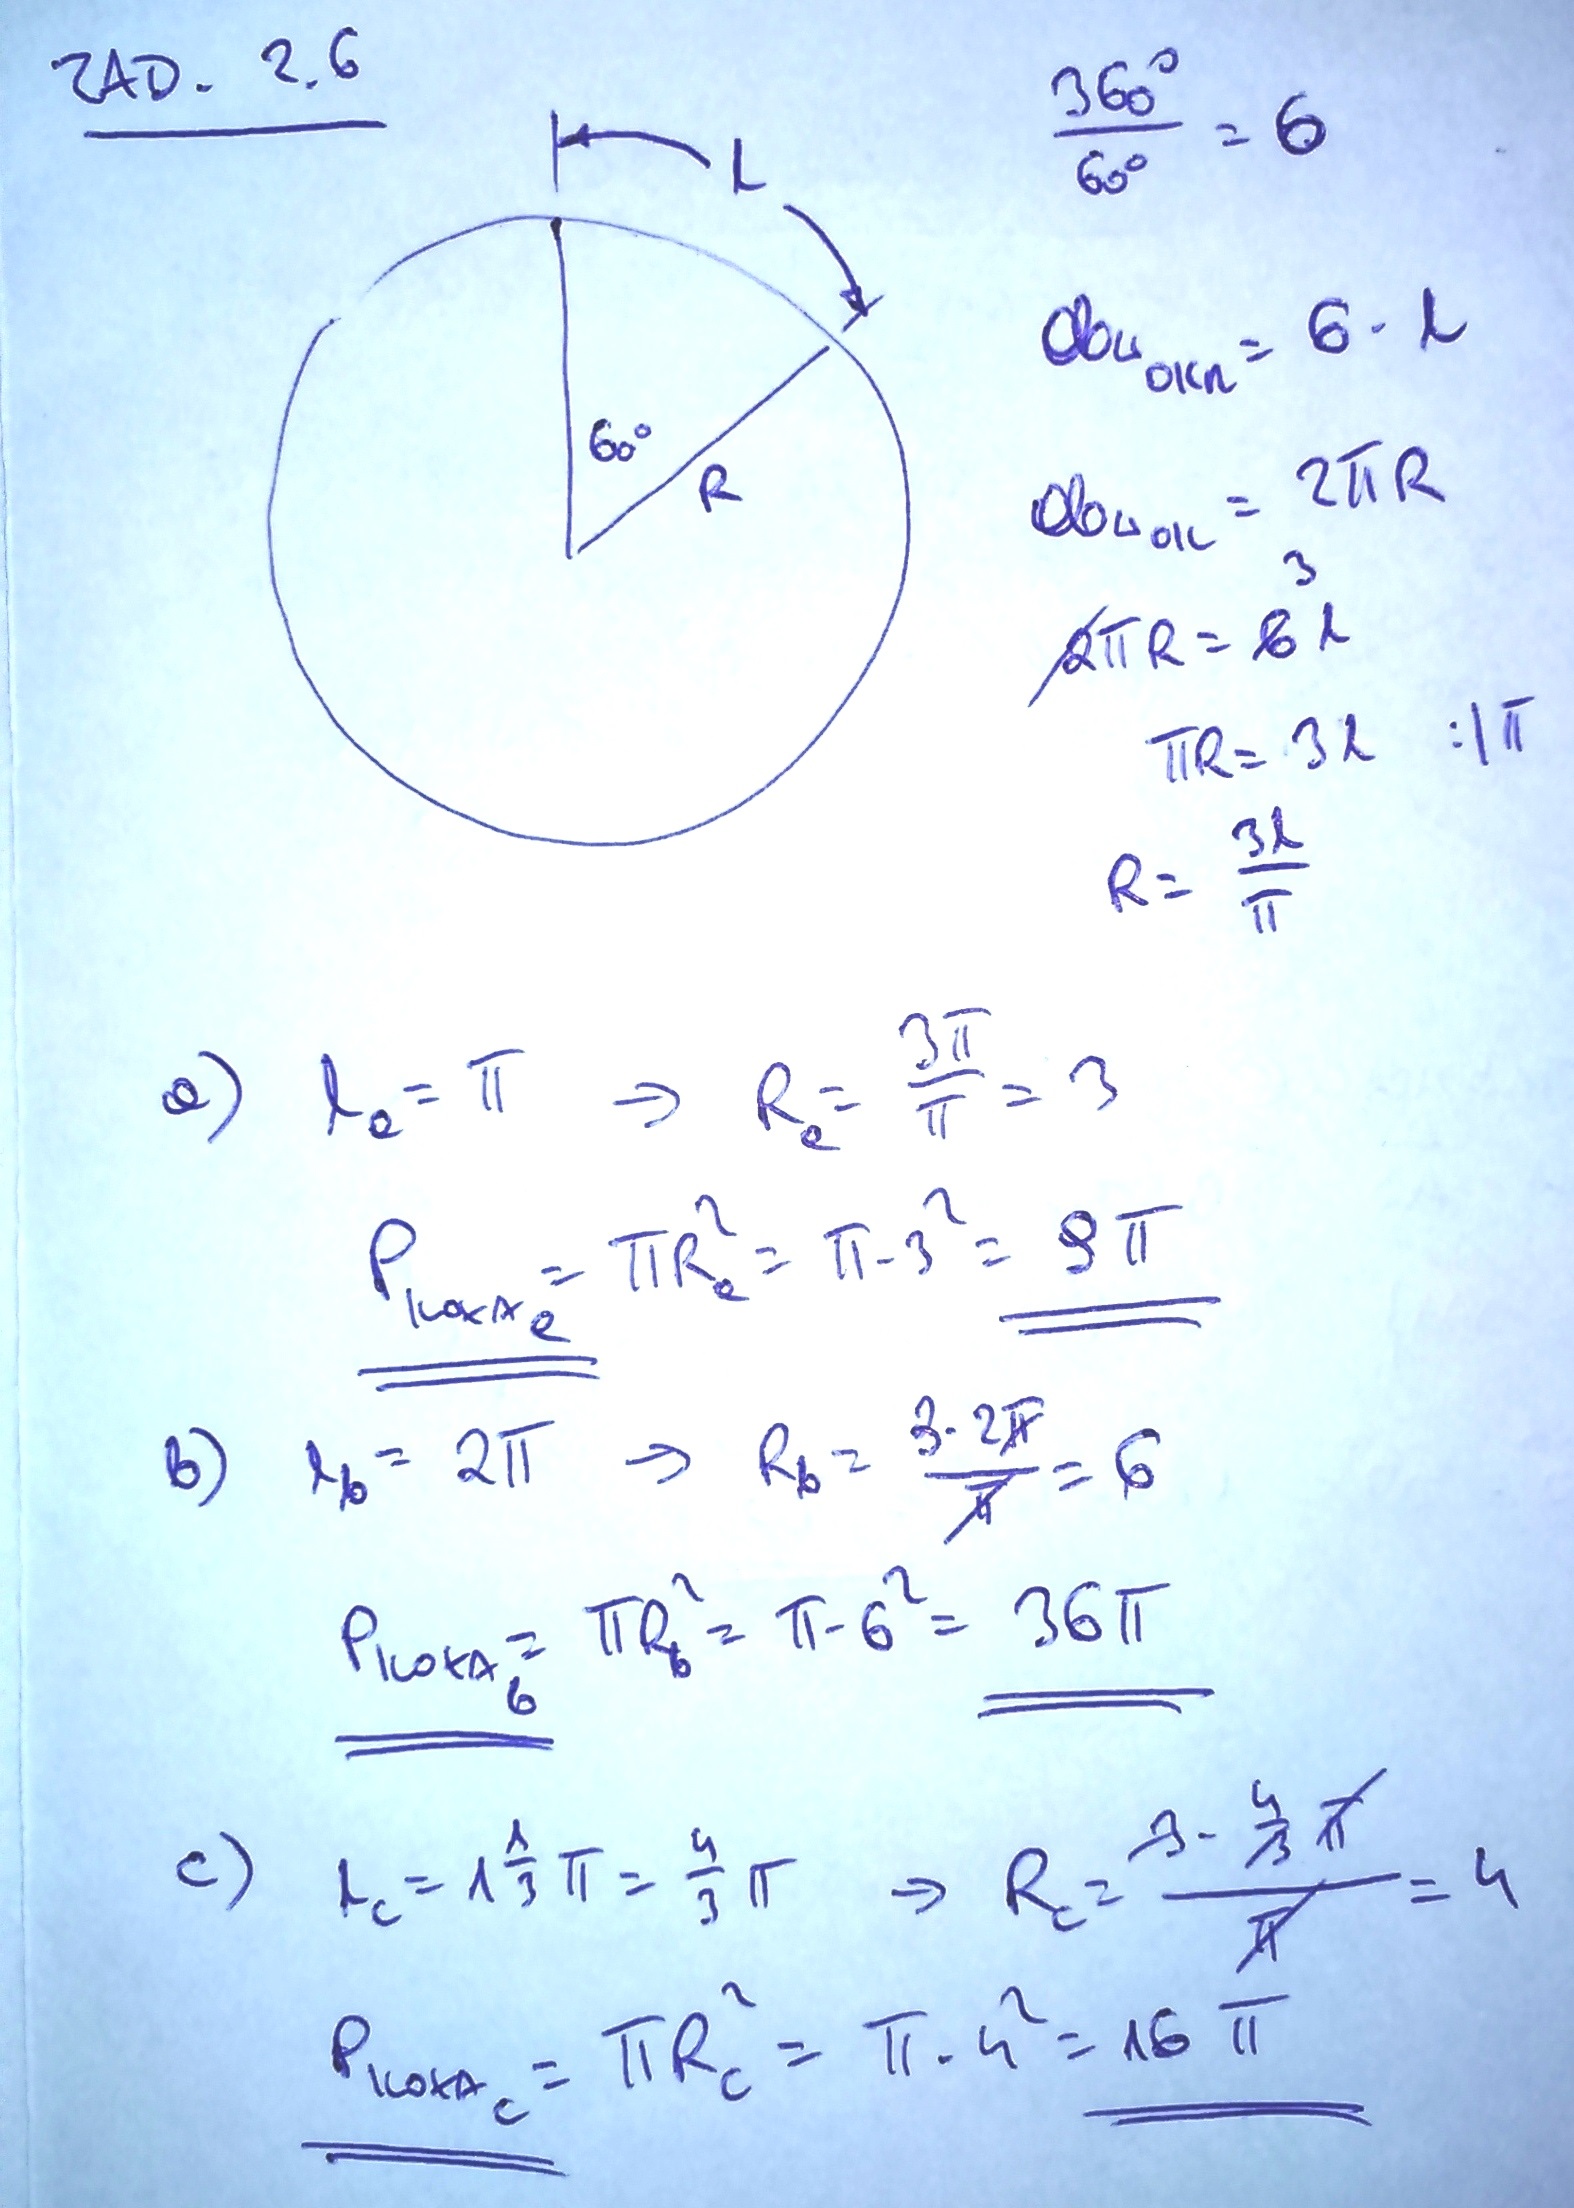 ZAD. 2.6
360°/60° = 6
L
60°
R
Obw okr = 6 · L
Obw ok = 2πR
2πR = 6L 3
πR = 3L :|π
R = 3L/π
a) La = π → Ra = 3π/π = 3
Pkoła a = πRa² = π · 3² = 9π
b) Lb = 2π → Rb = 3·2π/π = 6
Pkoła b = πRb² = π · 6² = 36π
c) Lc = 1 1/3 π = 4/3 π → Rc = 3 · 4/3 π/π = 4
Pkoła c = πRc² = π · 4² = 16π